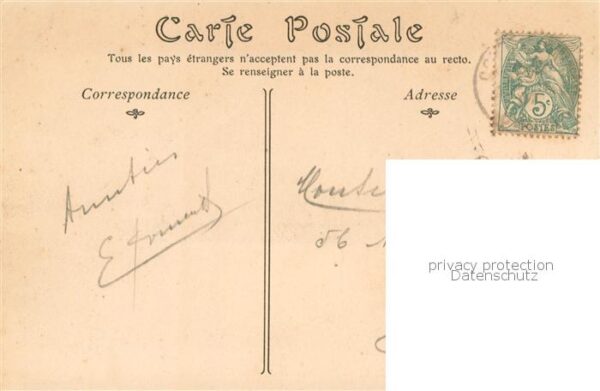 Carte Postale
Tous les pays étrangers n'acceptent pas la correspondance au recto.
Se renseigner à la poste.
Correspondance
Adresse
5c
POSTES
Amitiés
E
56
privacy protection
Datenschutz